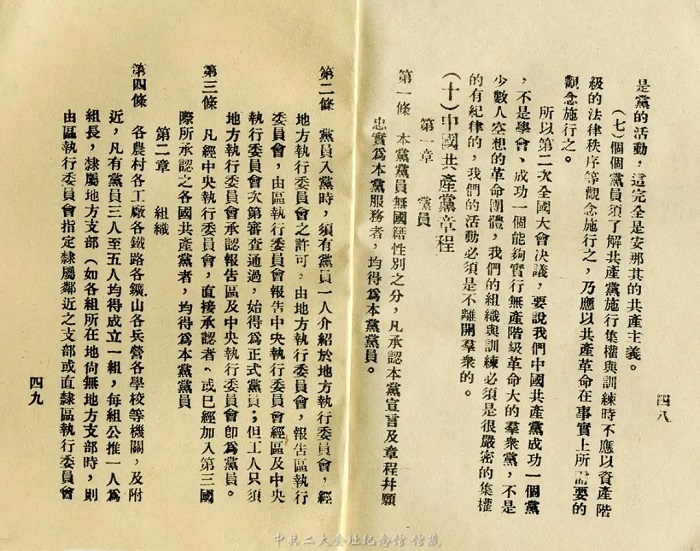 四八
是黨的活動，這完全是安那其的共產主義。
(七)個個黨員須了解共產黨施行集權與訓練時不應以資產階
級的法律秩序等觀念施行之，乃應以共產革命在事實上所需要的
觀念施行之。
所以第二次全國大會決議，要說我們中國共產黨成功一個黨
，不是學會、成功一個能夠實行無產階級革命大的羣衆黨，不是
少數人空想的革命團體，我們的組織與訓練必須是很嚴密的集權
的有紀律的，我們的活動必須是不離開羣衆的。
(十)中國共產黨章程
第一章　黨員
第一條　本黨黨員無國籍性別之分，凡承認本黨宣言及章程幷願
忠實爲本黨服務者，均得爲本黨黨員。
第二條　黨員入黨時，須有黨員一人介紹於地方執行委員會，經
地方執行委員會之許可，由地方執行委員會，報告區執行
委員會，由區執行委員會報告中央執行委員會經區及中央
執行委員會次第審查通過，始得爲正式黨員；但工人只須
地方執行委員會承認報告區及中央執行委員會卽爲黨員。
第三條　凡經中央執行委員會，直接承認者、或已經加入第三國
際所承認之各國共產黨者，均得爲本黨黨員
第二章　組織
第四條　各農村各工廠各鐵路各鑛山各兵營各學校等機關，及附
近，凡有黨員三人至五人均得成立一組，每組公推一人爲
組長，隸屬地方支部（如各組所在地尙無地方支部時，則
由區執行委員會指定隸屬鄰近之支部或直隸區執行委員會
四九
中共二大会址纪念馆 馆藏